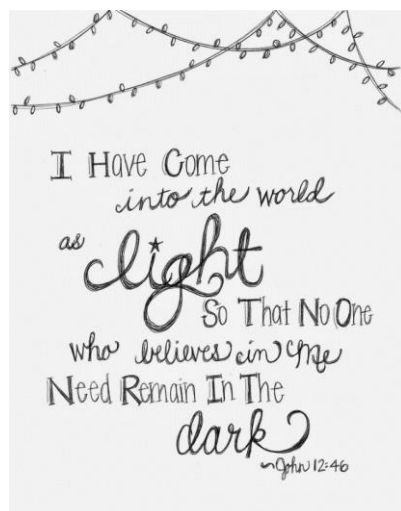 I Have Come
into the world
as light
So That No One
who believes in Me
Need Remain In The
dark
~John 12:46